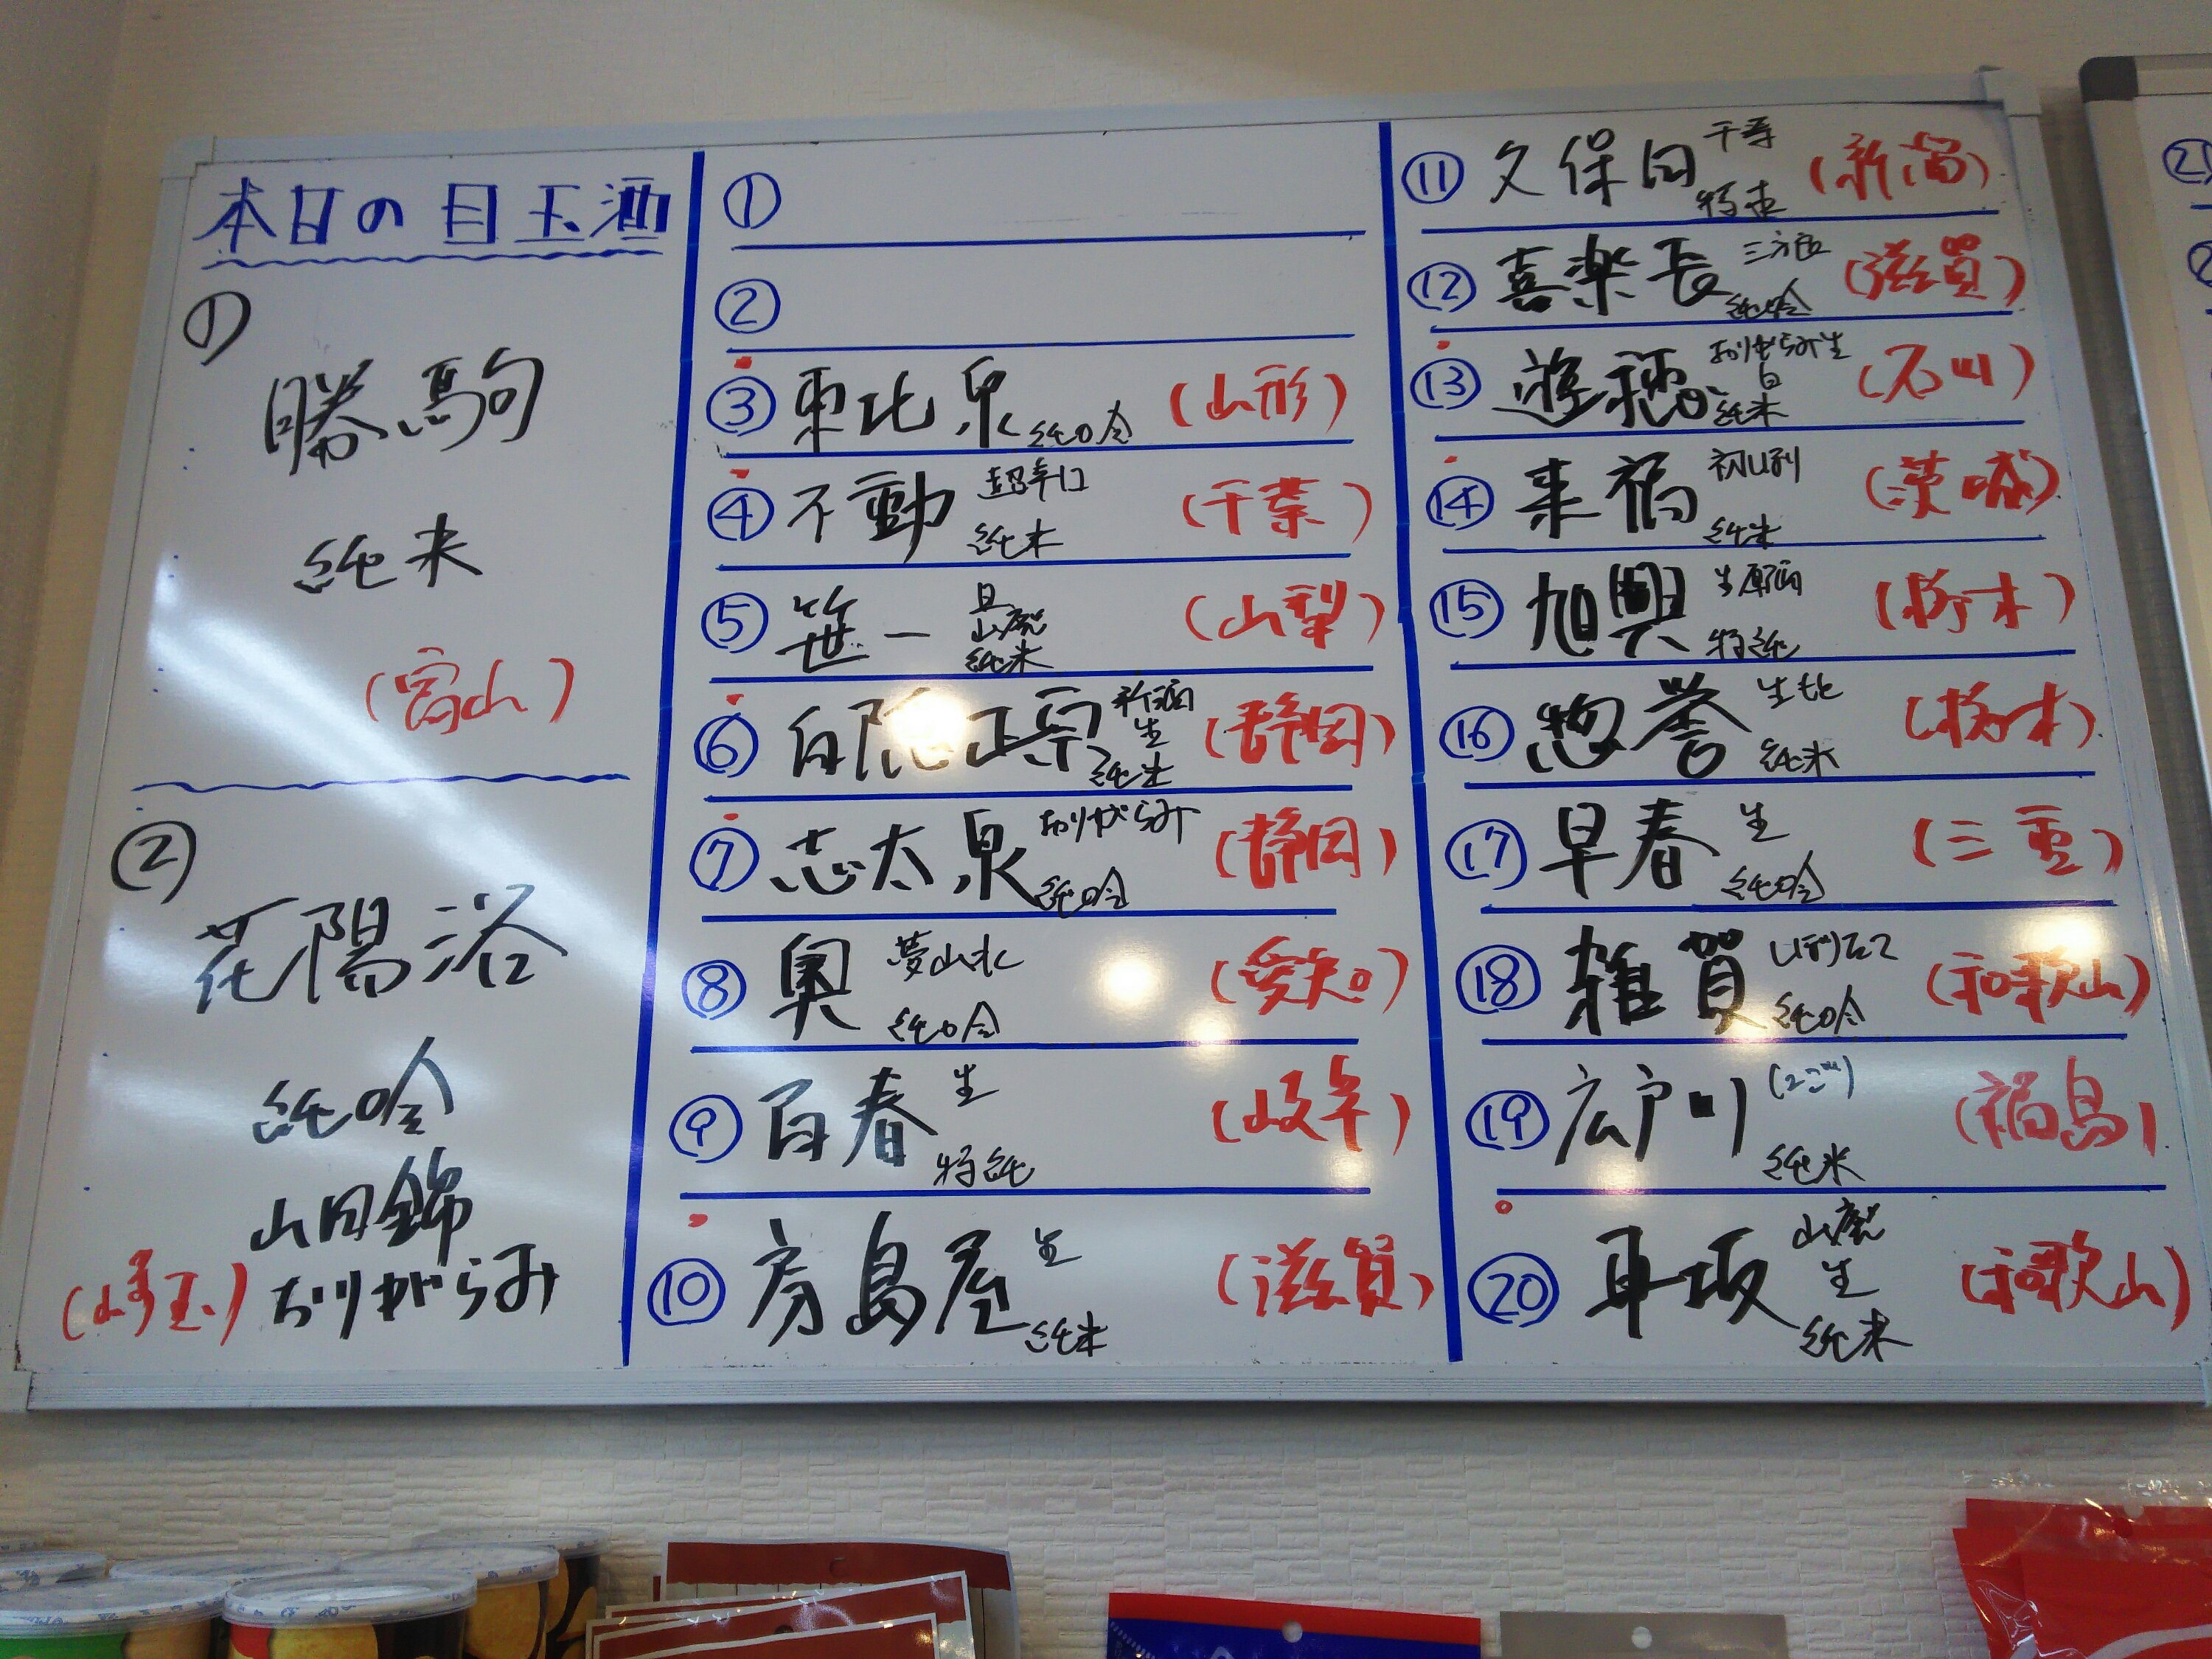 本日の目玉酒
①
勝駒
純米
(富山)
②
花陽浴
純吟
山田錦
おりがらみ
(埼玉)
①
②
③ 東北泉 純吟 (山形)
④ 不動 超辛口 純米 (千葉)
⑤ 笹一 旦 山廃 純米 (山梨)
⑥ 白隠正宗 新酒 生 純米 (静岡)
⑦ 志太泉 おりがらみ 純吟 (静岡)
⑧ 奥 夢山水 純吟 (愛知)
⑨ 百春 生 特純 (岐阜)
⑩ 房島屋 生 純米 (滋賀)
⑪ 久保田 千寿 特本 (新潟)
⑫ 喜楽長 三方良 純吟 (滋賀)
⑬ 遊穂 おりがらみ生 白 純米 (石川)
⑭ 来福 初しぼり 純米 (茨城)
⑮ 旭興 生原酒 特純 (栃木)
⑯ 惣誉 生酛 純米 (栃木)
⑰ 早春 生 純吟 (三重)
⑱ 雑賀 しぼりたて 純吟 (和歌山)
⑲ 広戸川 (にごり) 純米 (福島)
⑳ 車坂 山廃 生 純米 (和歌山)